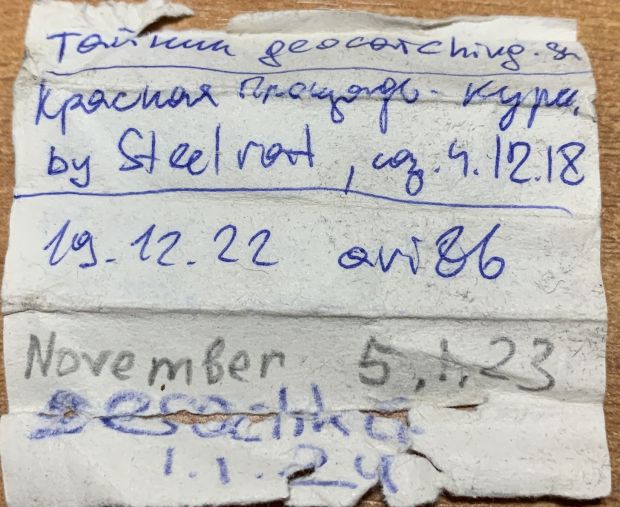 Тайник geocatching.su
Красная площадь - Курс.
by Steelrat, соз. 4.12.18
19.12.22 avi86
November 5.1.23
1.1.24